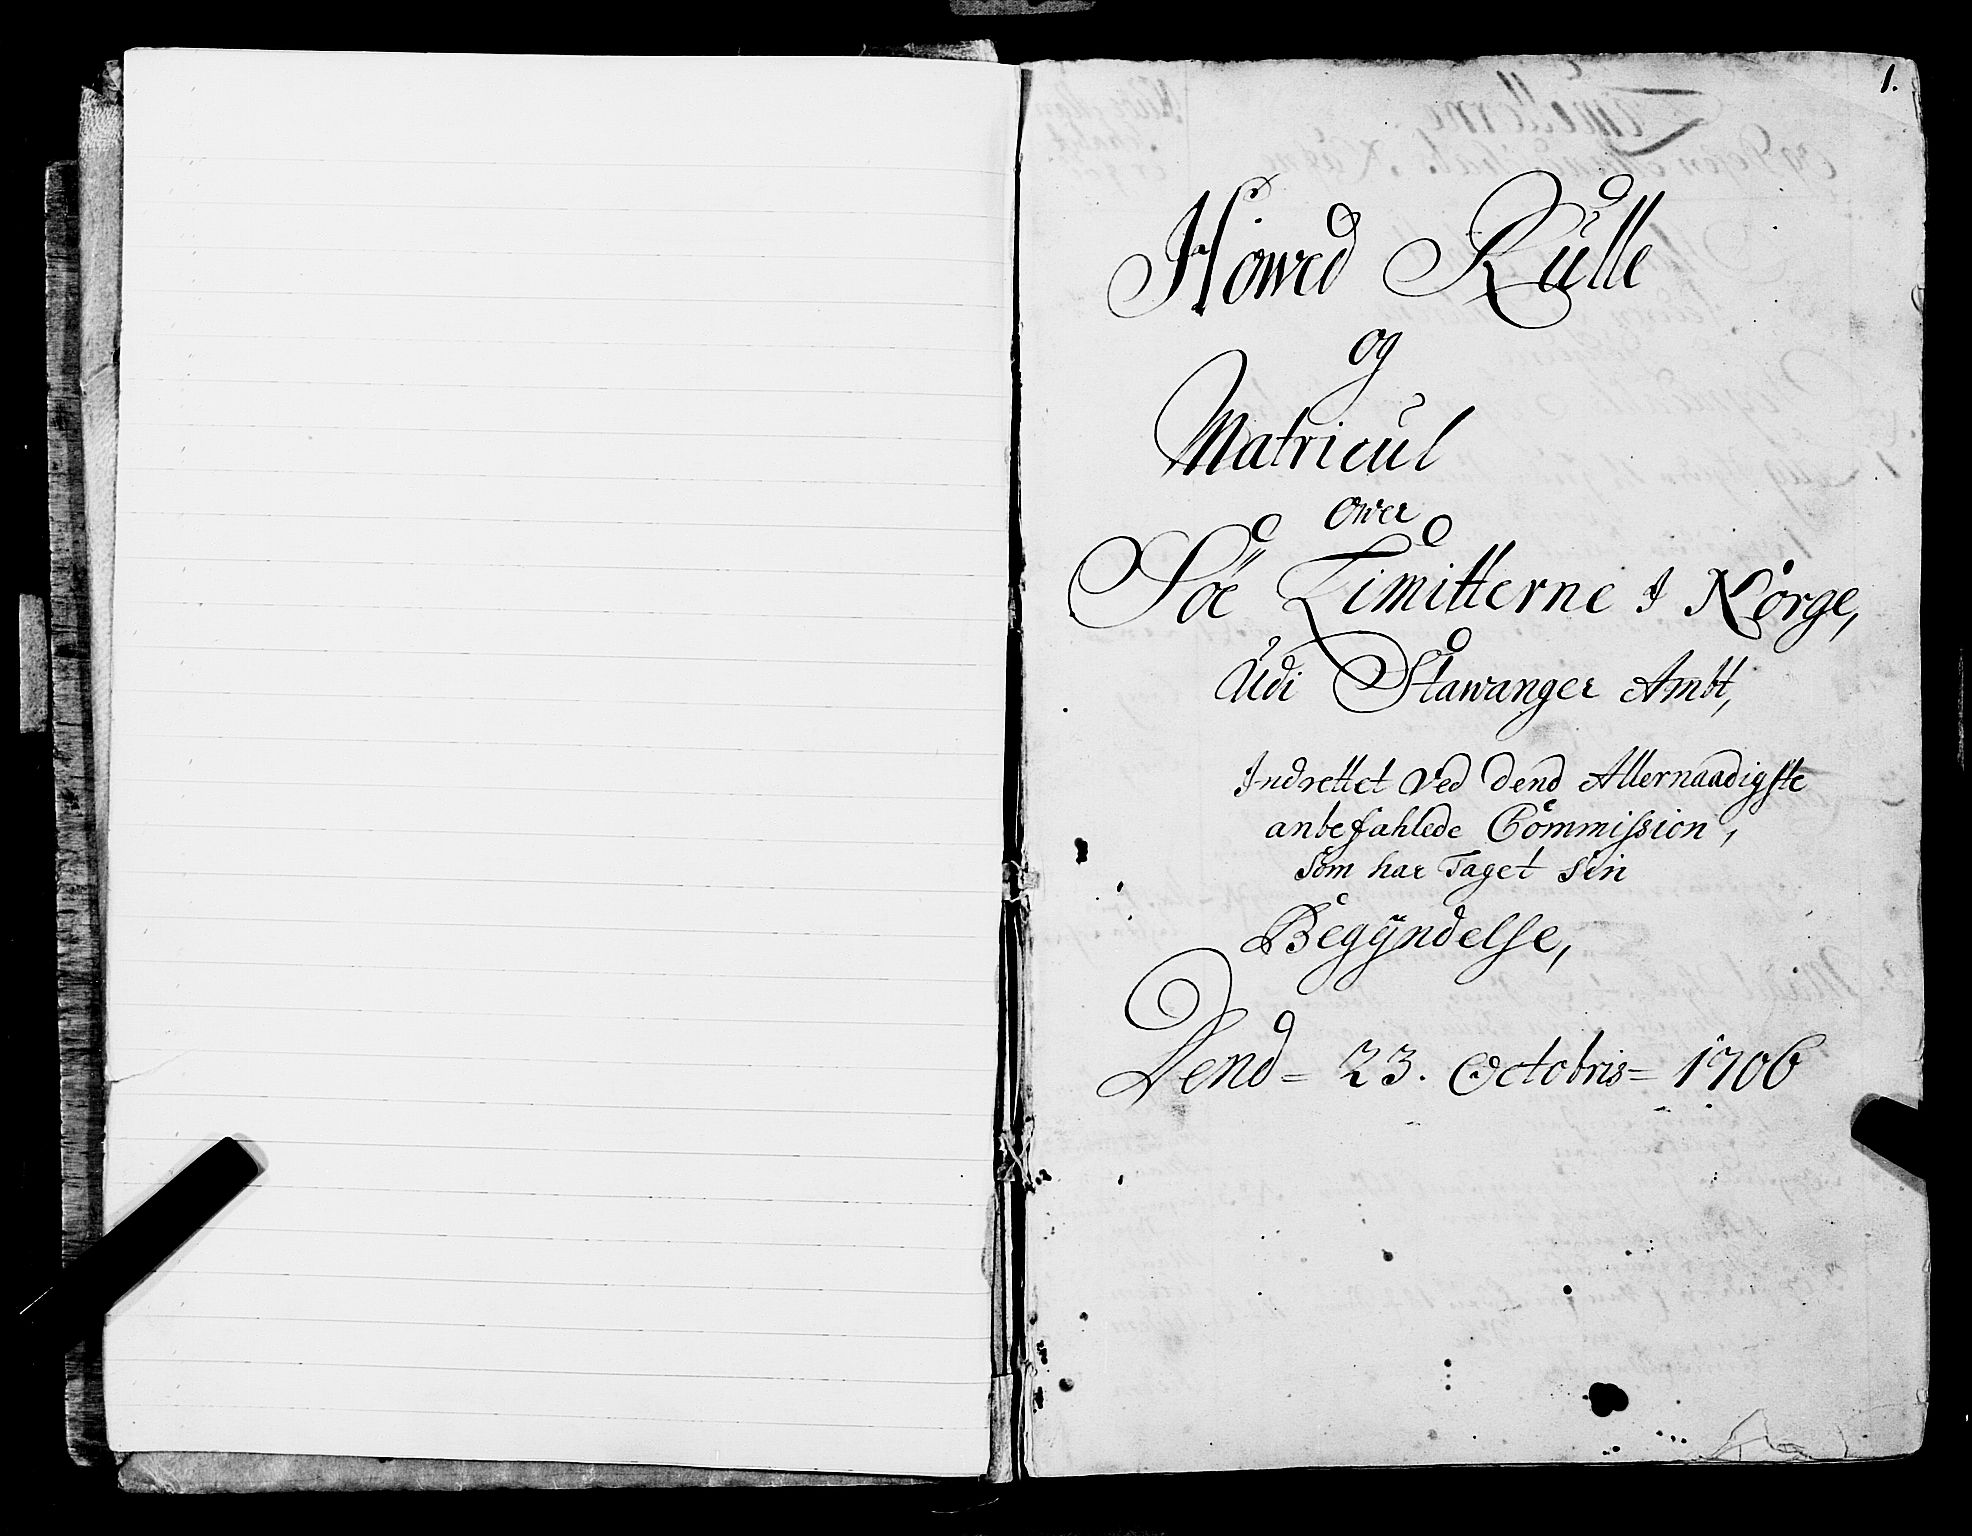 1.
Howed Rulle
og
Matricul
ower
Söe Limitterne I Norge,
Udi Stawanger Ambt,
Indrettet ved dend Allernaadigste
anbefahlede Commission,
som har Taget sin
Begÿndelse,
Dend = 23. Octobris = 1706